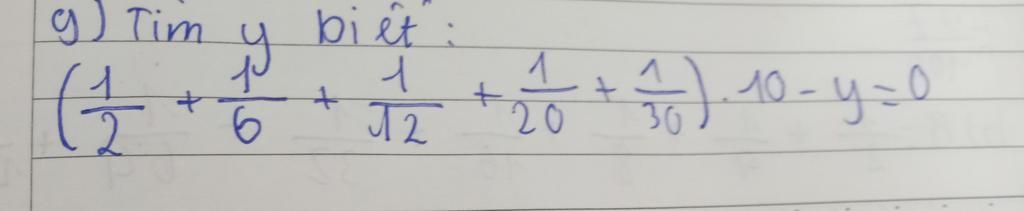 g) Tìm y biết :
(1/2 + 1/6 + 1/12 + 1/20 + 1/30) . 10 - y = 0